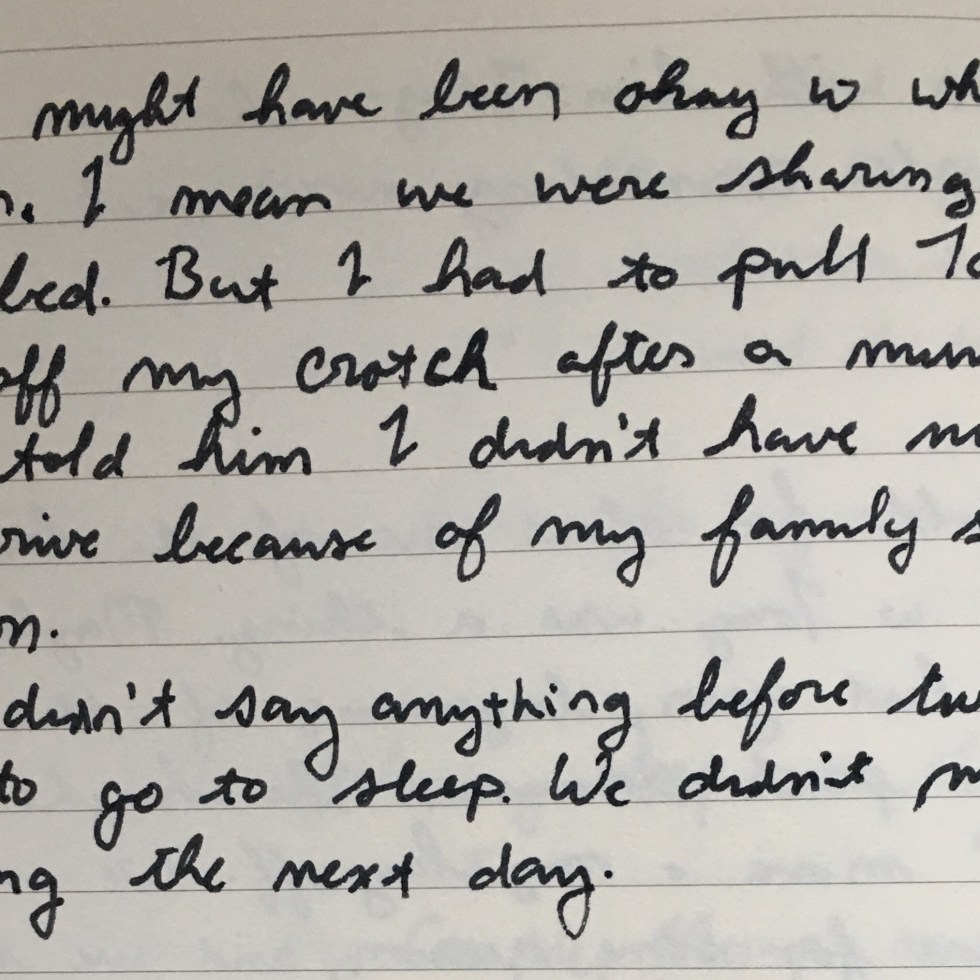 might have been okay w wh
n. I mean we were sharing
bed. But I had to pull
off my crotch after a
told him I didn't have
rive because of my family s
n.
didn't say anything before
to go to sleep. We didn't
ng the next day.